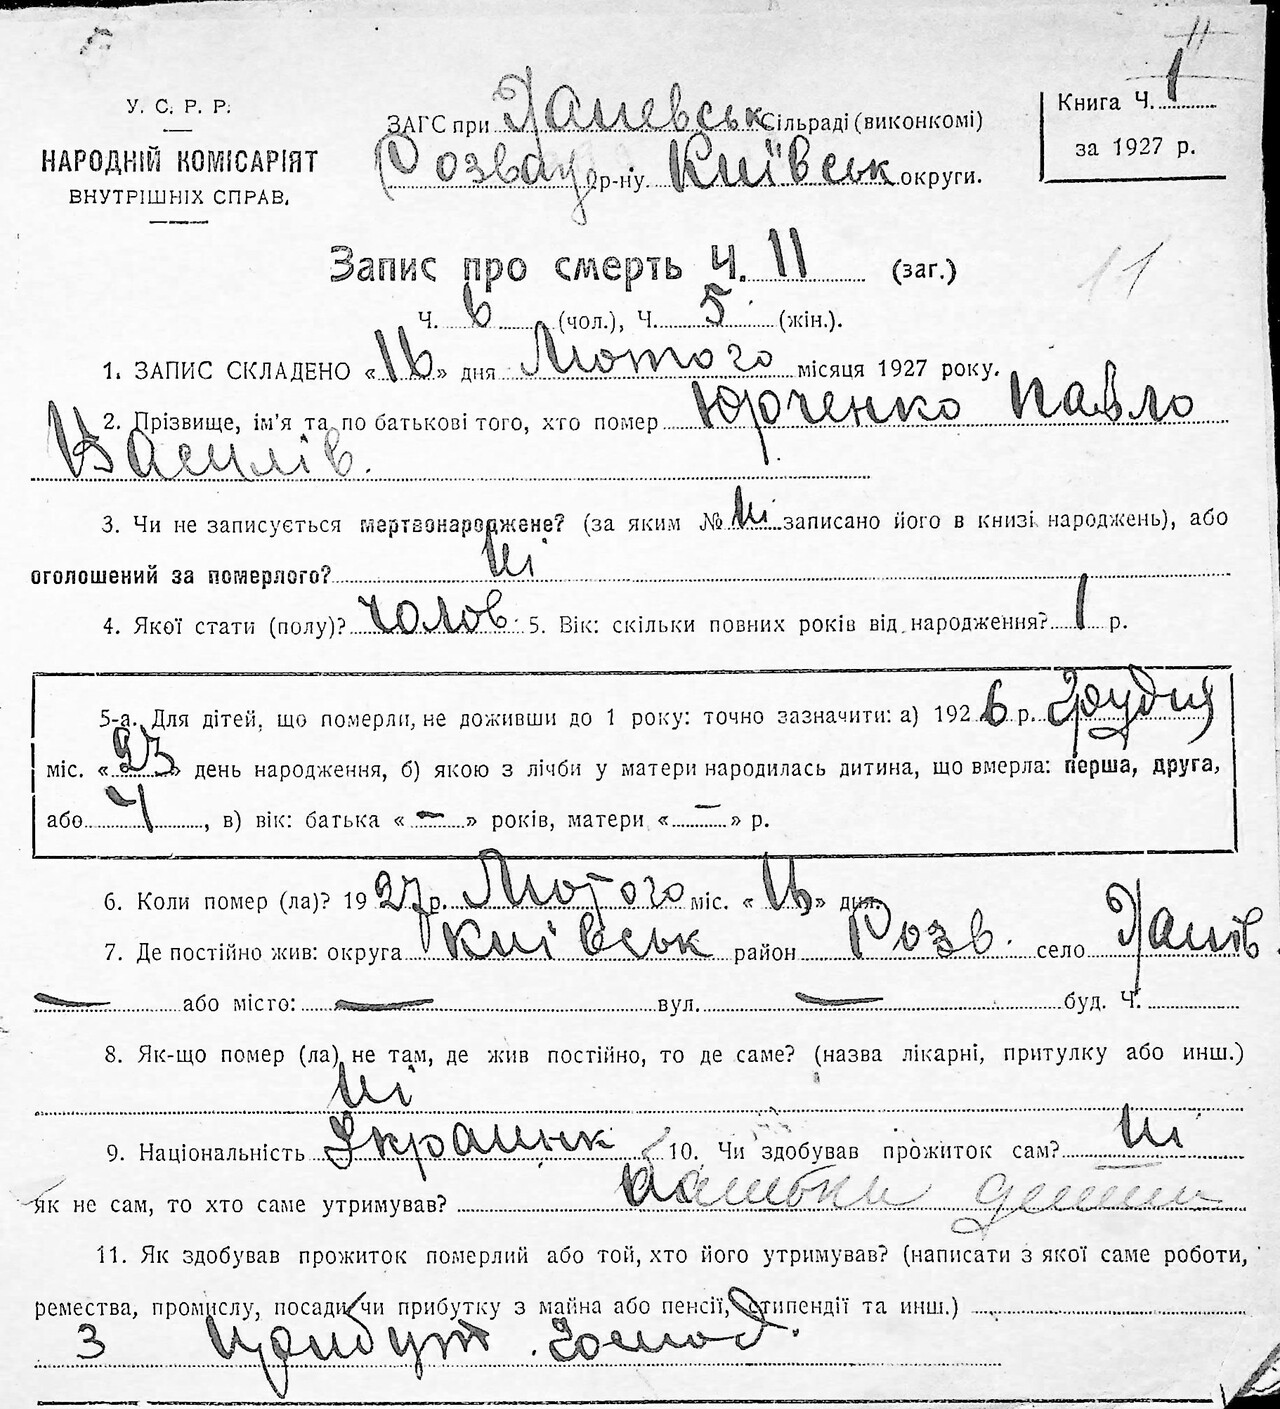 У. С. Р. Р.
НАРОДНІЙ КОМІСАРІЯТ
ВНУТРІШНІХ СПРАВ.
ЗАГС при Ханевськ Сільраді (виконкомі)
Розваж р-ну. Київськ округи.
Книга Ч. 1
за 1927 р.
11
Запис про смерть Ч. 11 (заг.)
Ч. 6 (чол.), Ч. 5 (жін.).
1. ЗАПИС СКЛАДЕНО «16» дня Лютого місяця 1927 року.
2. Прізвище, ім'я та по батькові того, хто помер Юрченко Павло
Василів.
3. Чи не записується мертвонароджене? (за яким № ні записано його в книзі народжень), або
оголошений за померлого? ні
4. Якої стати (полу)? чолов. 5. Вік: скільки повних років від народження? 1 р.
5-а. Для дітей, що померли, не доживши до 1 року: точно зазначити: а) 1926 р. Грудня
міс. «23» день народження, б) якою з лічби у матери народилась дитина, що вмерла: перша, друга,
або 4, в) вік: батька «—» років, матери «—» р.
6. Коли помер (ла)? 1927 р. Лютого міс. «16» дня.
7. Де постійно жив: округа Київськ район Розв. село Ханів
— або місто: — вул. — буд. Ч.
8. Як-що помер (ла) не там, де жив постійно, то де саме? (назва лікарні, притулку або инш.)
ні
9. Національність Украинк 10. Чи здобував прожиток сам? ні
як не сам, то хто саме утримував?
11. Як здобував прожиток померлий або той, хто його утримував? (написати з якої саме роботи,
ремества, промислу, посади чи прибутку з майна або пенсії, стипендії та инш.)
З прибут. господ.